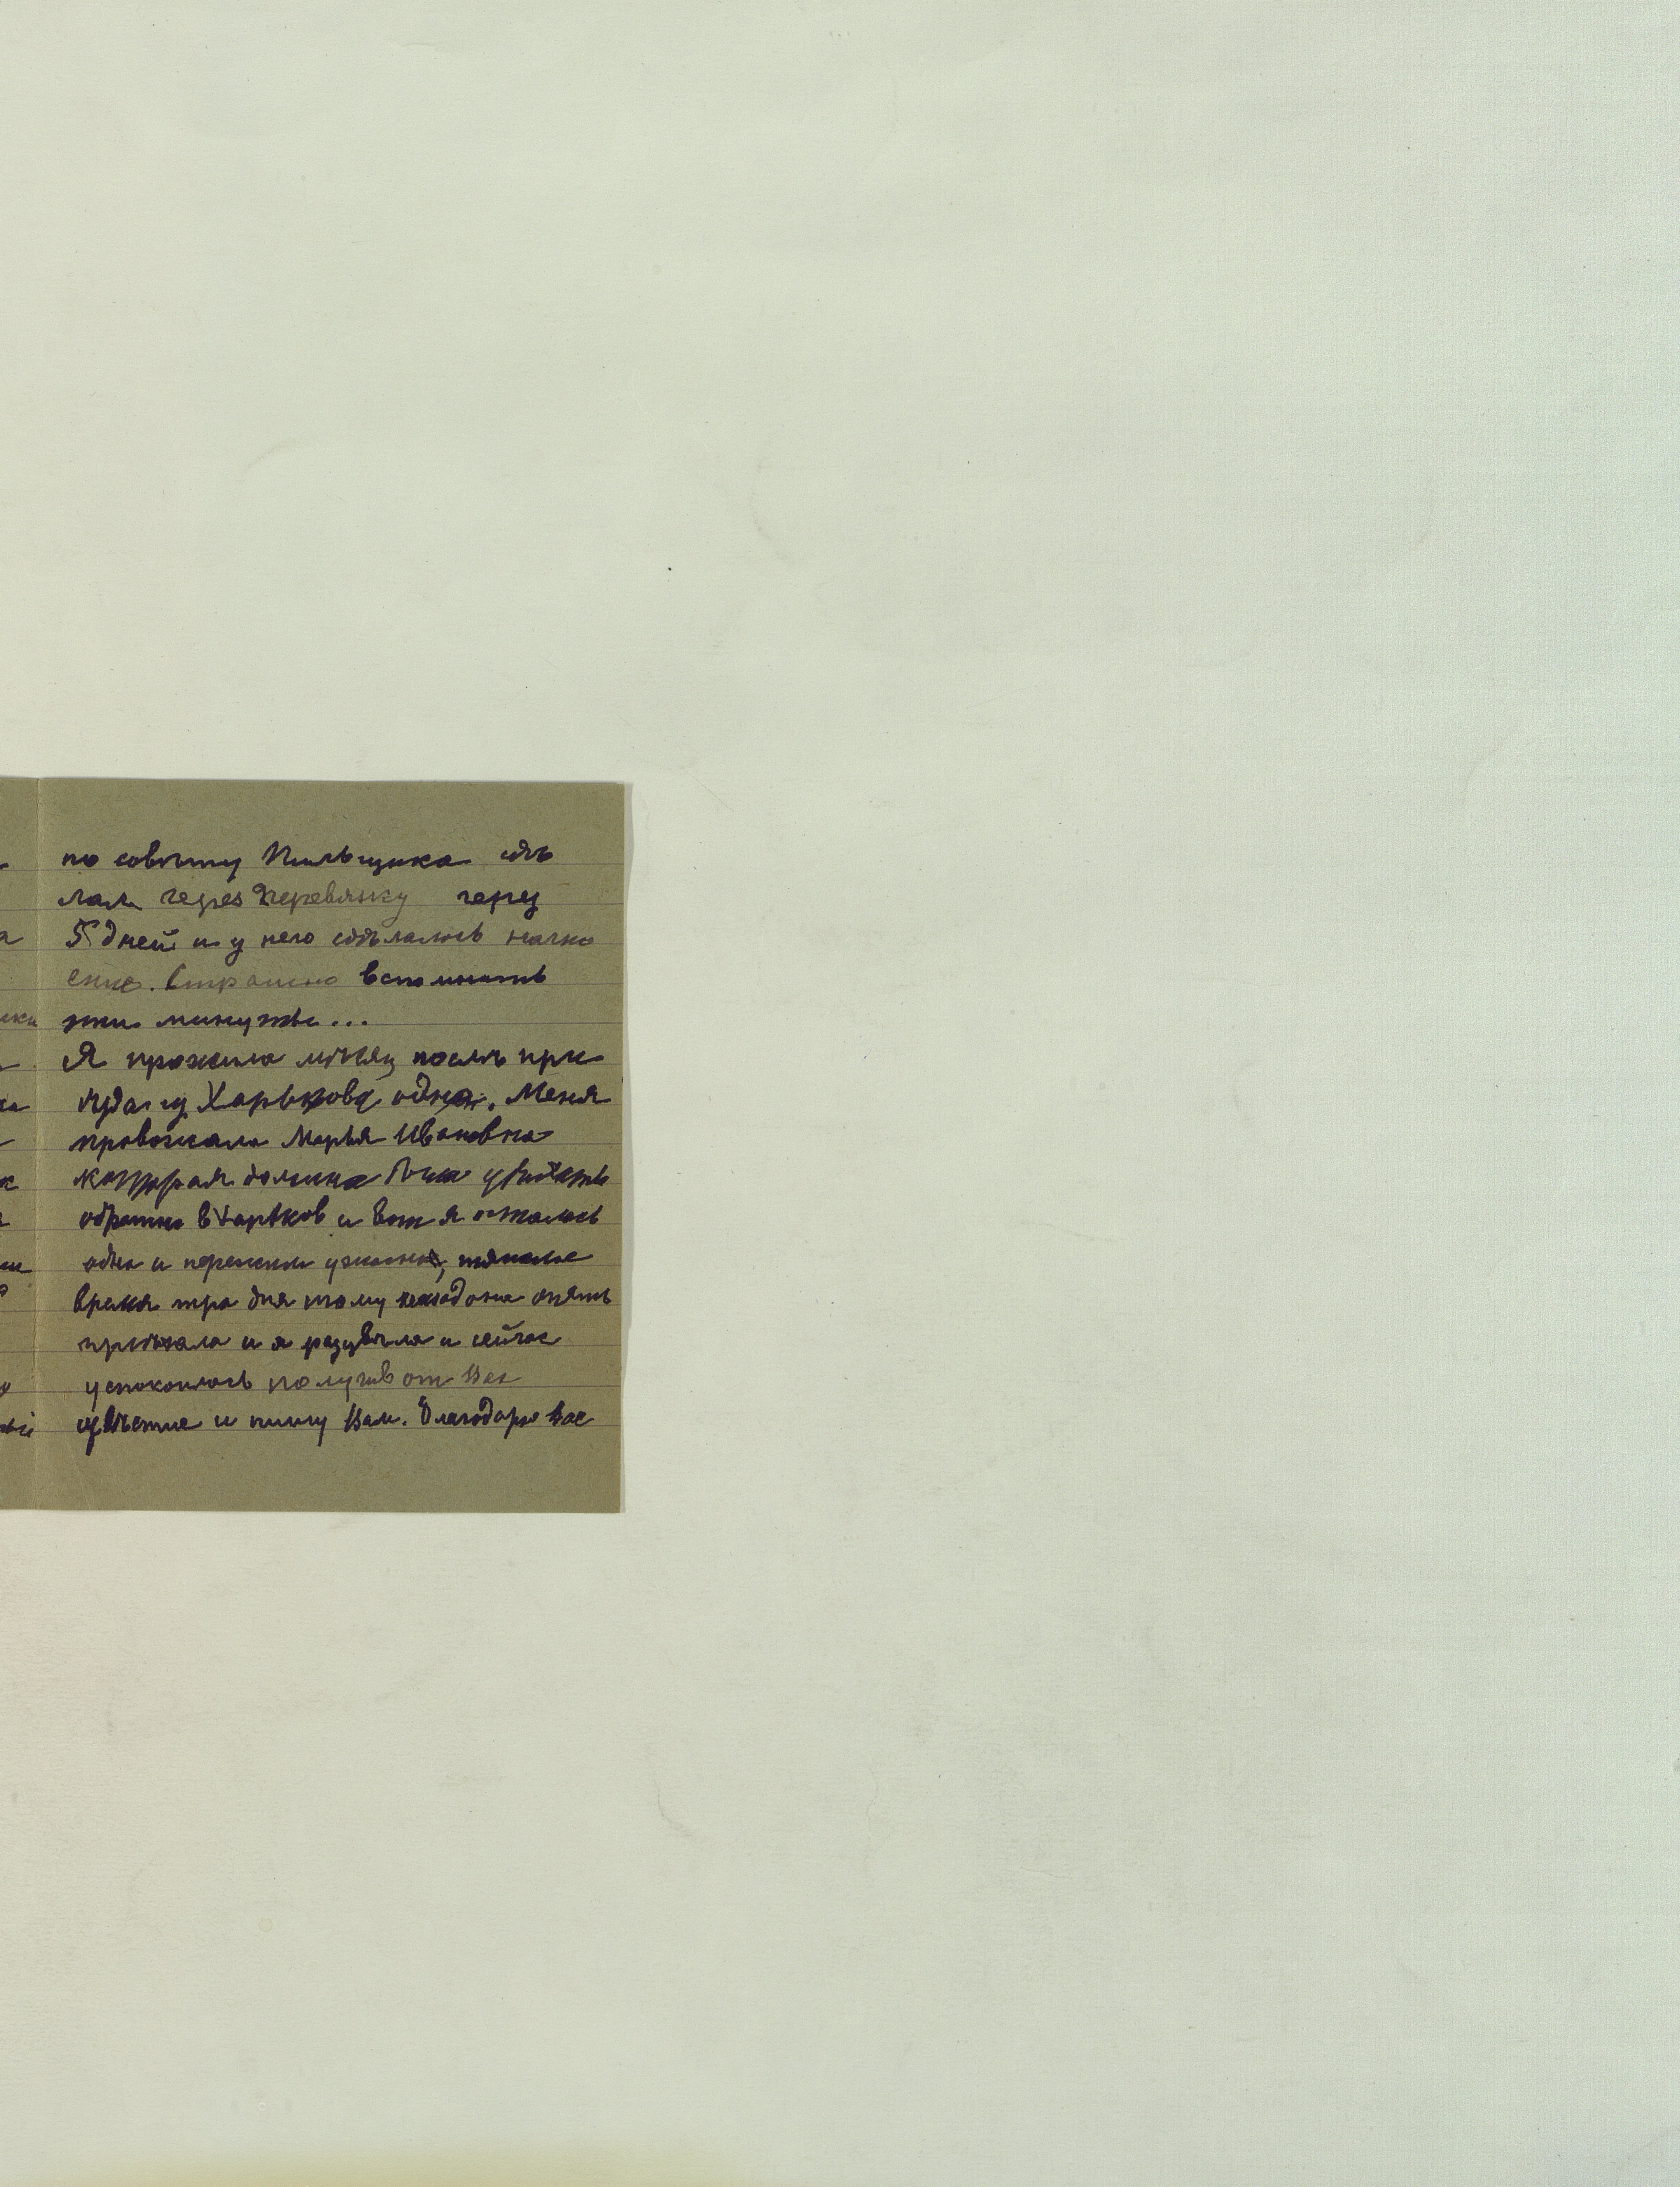 по совѣту Пильщика сдѣ
лали через перевязку через
5 дней и у него сдѣлалось нагно
ение. Страшно вспомнить
эти минуты...
Я прожила мѣсяц послѣ при
ѣзда из Харькова одна. Меня
провожала Марья Ивановна
которая должна была уѣхать
обратно в Харьков и вот я осталась
одна и пережила ужасное, тяжелое
время три дня тому назад она опять
приѣхала и я
и сейчас
успокоилась получив от Вас
извѣстие и пишу Вам. Благодарю Вас